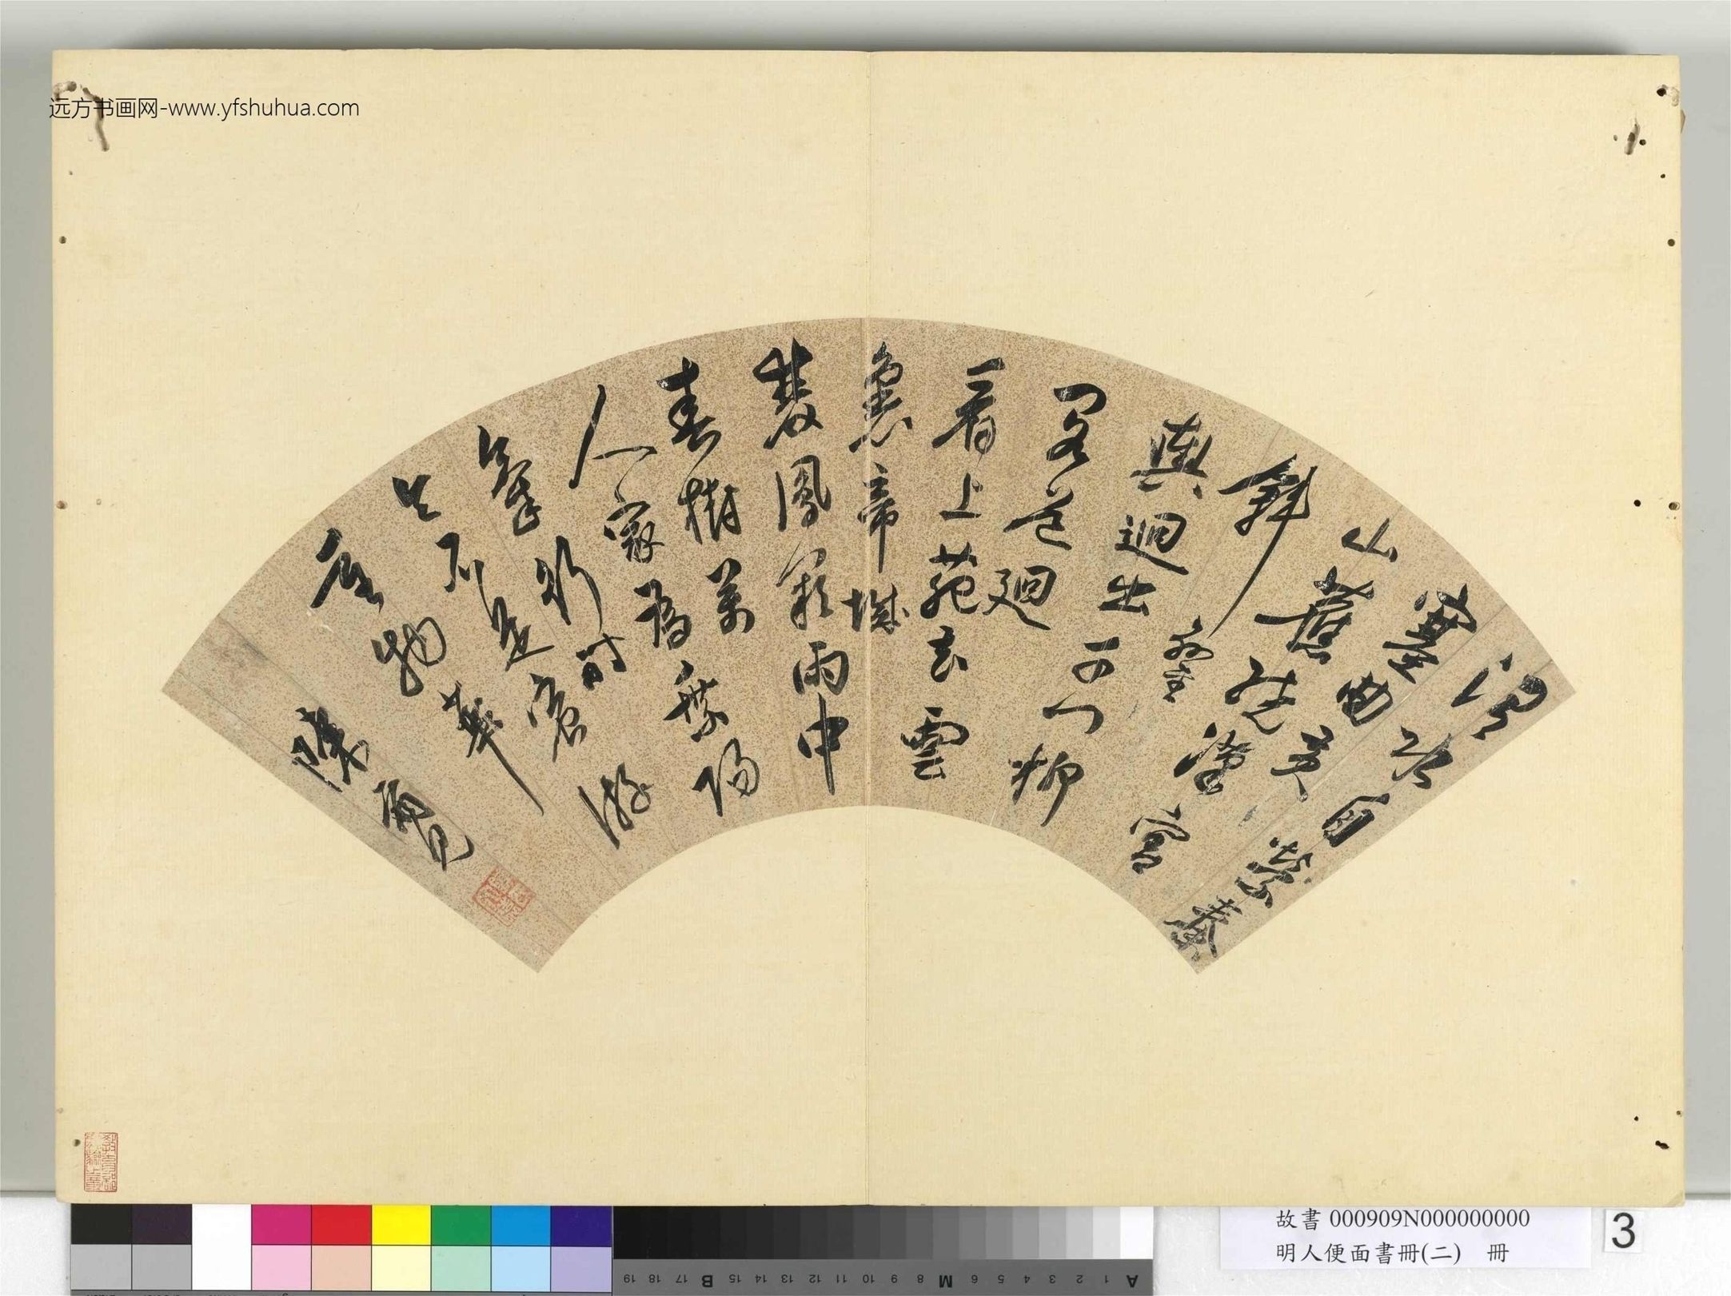 远方书画网-www.yfshuhua.com
渭水自縈秦
塞曲黃
山舊繞漢宮
斜鑾
輿迥出千門柳
閣道迴
看上苑花雲
裏帝城
雙鳳闕雨中
春樹萬
人家為乘陽
氣行時
令不是宸遊
玩物華
陳
故書 000909N000000000
明人便面書冊(二) 冊
3
A 1 2 3 4 5 6 M 8 9 10 11 12 13 14 15 B 17 18 19